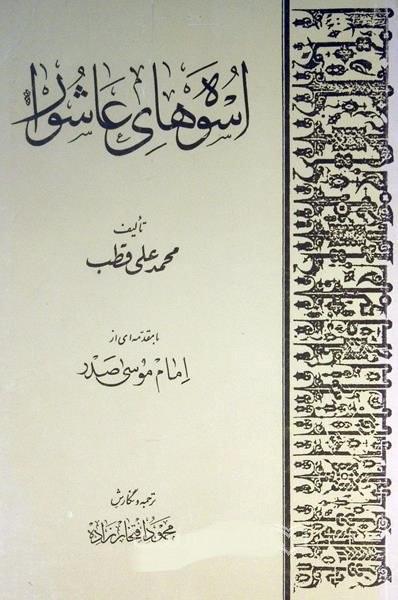 اسوه‌های عاشورا
تألیف
محمد علی قطب
با مقدمه‌ای از
امام موسی صدر
ترجمه و نگارش
محمود افتخارزاده